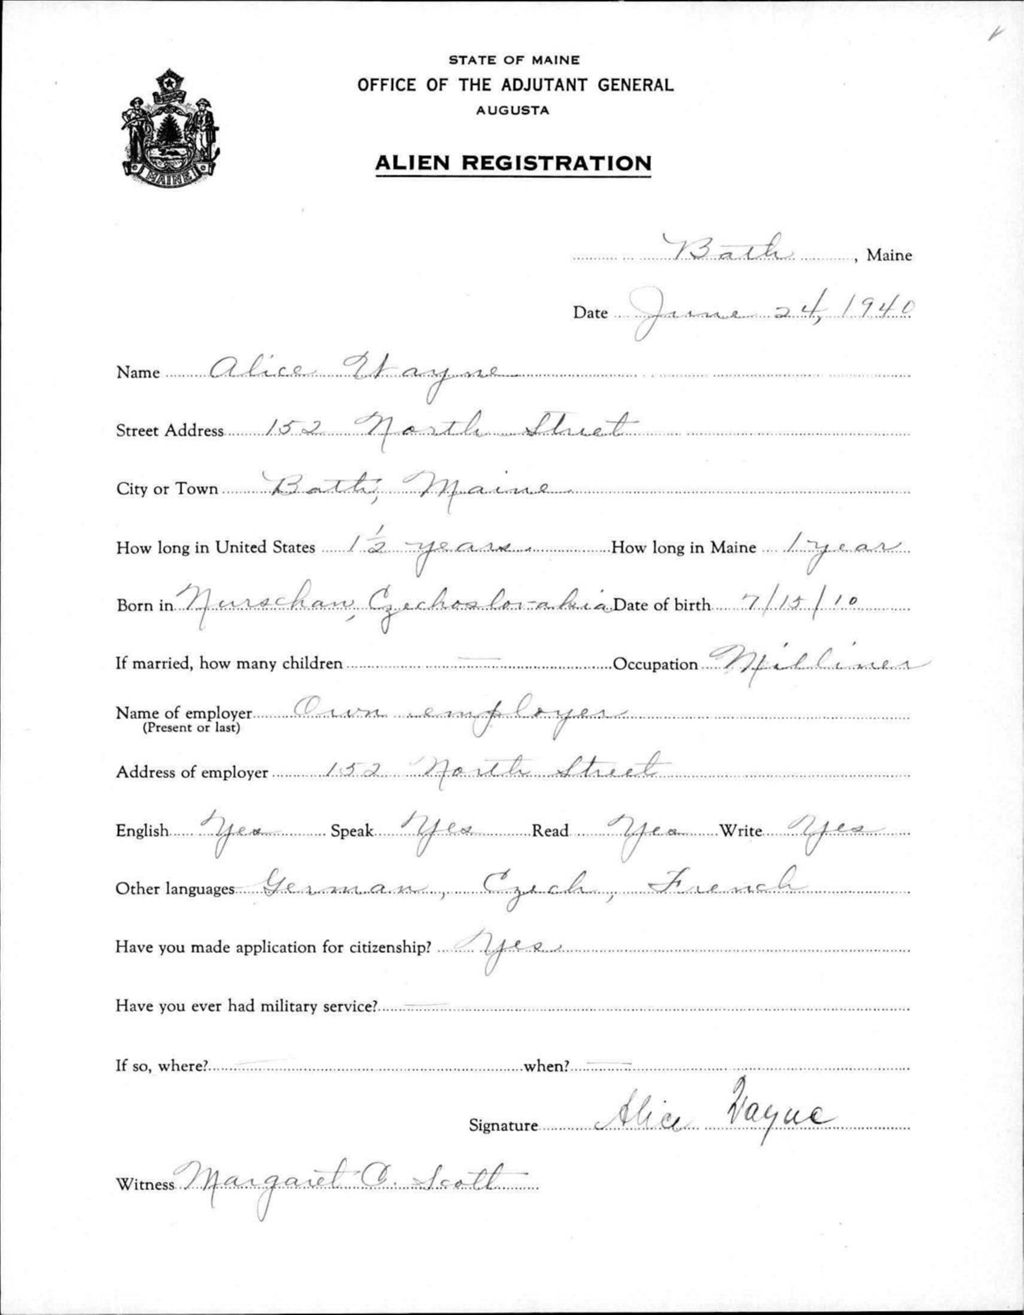 STATE OF MAINE
OFFICE OF THE ADJUTANT GENERAL
AUGUSTA
ALIEN REGISTRATION
MAINE
Bath, Maine
Date June 24, 1940
Name Alice Wayne
Street Address 152 North Street
City or Town Bath, Maine
How long in United States 1 1/2 years. How long in Maine 1 year
Born in Nurschaw, Czechoslovakia Date of birth 7/15/10
If married, how many children — Occupation Milliner
Name of employer Own employer
(Present or last)
Address of employer 152 North Street
English Yes Speak Yes Read Yes Write Yes
Other languages German, Czech, French
Have you made application for citizenship? Yes
Have you ever had military service? —
If so, where? — when? —
Signature Alice Wayne
Witness Margaret C. Scott